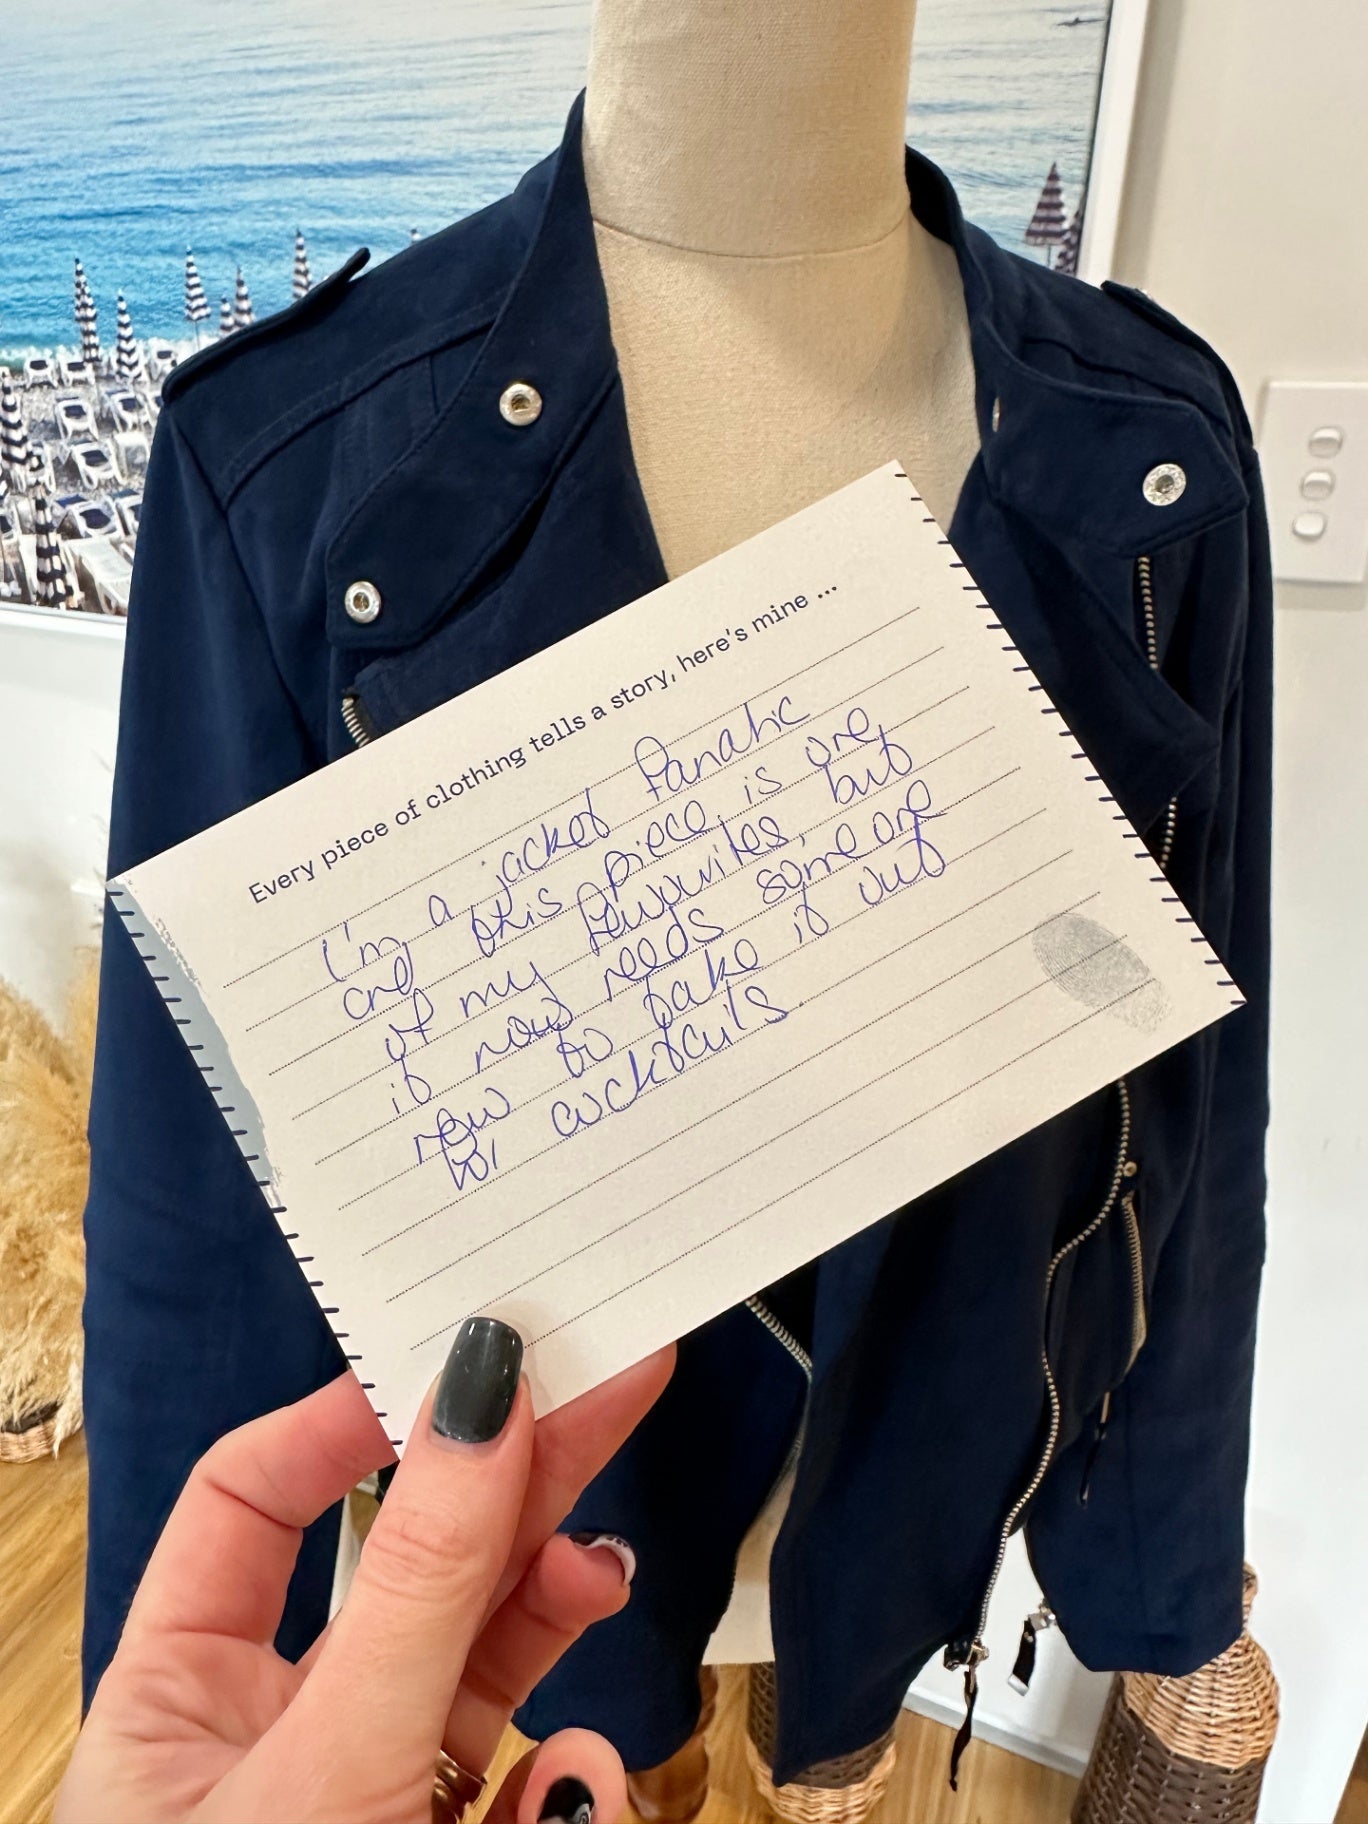 Every piece of clothing tells a story, here's mine ...
I'm a jacket fanatic
and this piece is one
of my favourites, but
it now needs someone
new to take it out
for cocktails.